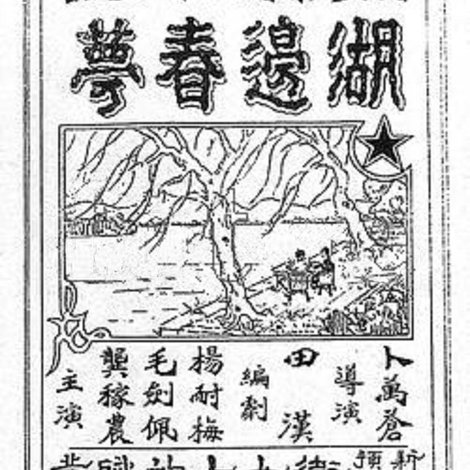 湖邊春夢
卜萬蒼
導演
田漢
編劇
楊耐梅
毛劍佩
龔稼農
主演